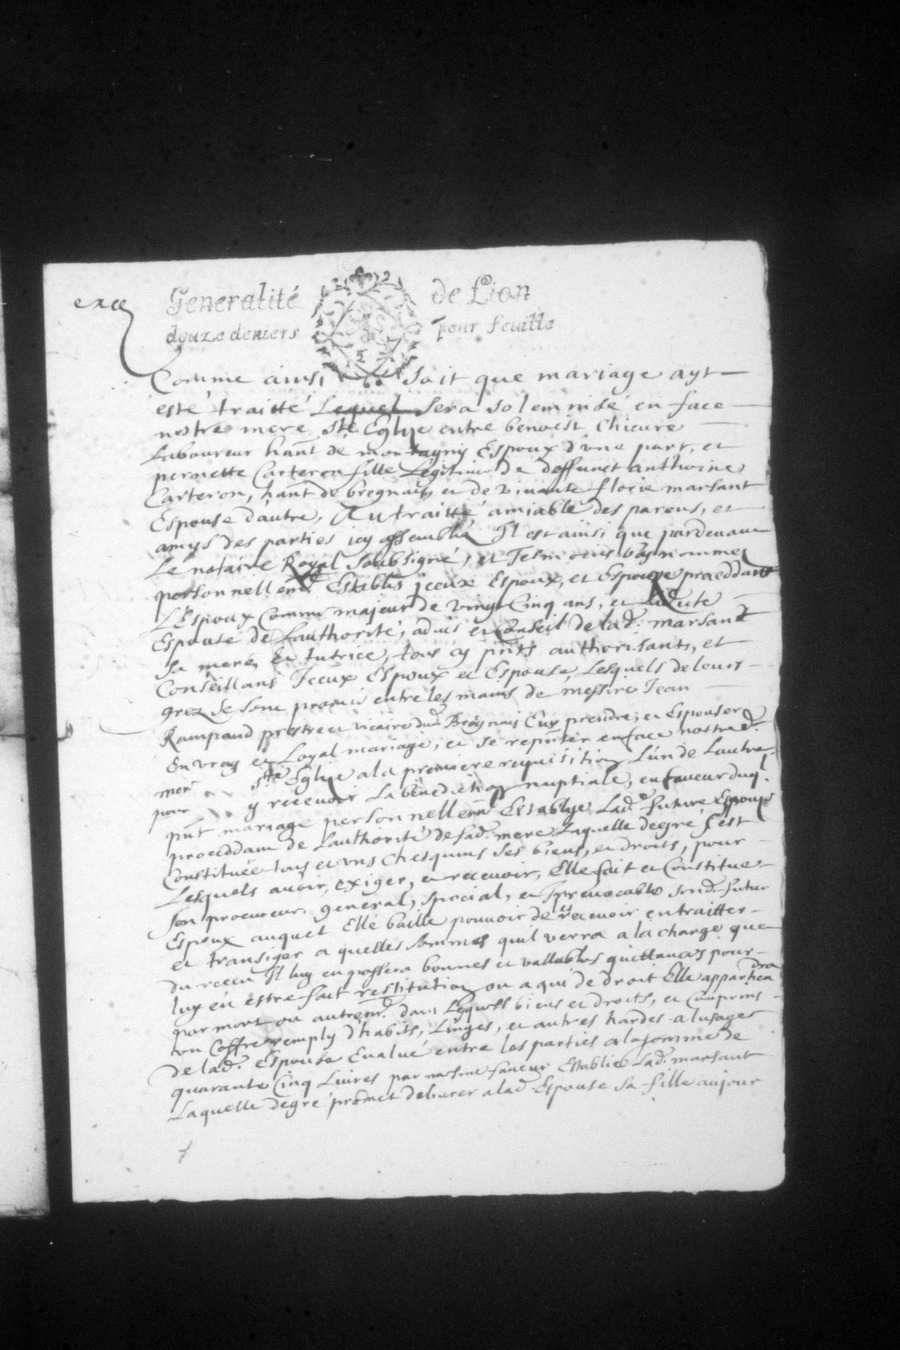 exce
Generalité de Lion
douze deniers pour feuille
Comme ainsi soit que mariage ayt
esté traitté Lequel sera solemnisé en face
nostre mere Ste Eglise entre benoist Chicure
Laboureur hant de montagny Espoux d'une part, et
pernette Carteron fille Legitime de deffunct anthoine
Carteron, hant de bregnais, et de vivante florie marsant
Espouse d'autre, Au traitté amiable des parens, et
amys des parties icy assemblés Il est ainsi que pardevant
Le notaire Royal soubsigné, et Tesmoins bas nommes
personnellemt Establis iceux Espoux, et Espouse proceddant
L'Espoux Comme majeur de vingt Cinq ans, et Ladite
Espouse de L'authorité, advis et Conseil de lad. marsant
sa mere, et tutrice, tous cy pnts authorisants, et
Conseillans Iceux Espoux et Espouse, Lesquels de leurs
grez se sont promis entre les mains de messire Jean
Rampaud prestre vicaire dud Bregnais Cuy prendre, et Espouser
En vray et Loyal mariage, et se repnter en face nostred.
mere Ste Eglise a la premiere requisition L'un de L'autre
pour y recevoir La benediction nuptiale, en faveur duql.
pnt mariage personnellemt Establye Lad. future Espouse
proceddant de L'authorité de sad. mere Laquelle de gré s'est
Constituée tous et uns chesquuns ses biens, et droits, pour
Lesquels avoir, exiger, et recevoir, Elle fait et Constitue
son procureur general, special, et Irrevocable sond. futur
Espoux auquel Elle baille pouvoir de les recevoir en traitter
et transiger a quelles sommes qu'il verra a la charge que
du receu Il luy en passera bonnes et vallables quittances pour
luy en estre fait restitution ou a qui de droit Elle appartiendra
par mort ou autremt. dans Lesquels biens et droits, et Comprins
un Coffre remply d'habits, Linges, et autres hardes a lusages
de lad. Espouse Evalué entre les parties a la somme de
quarante Cinq Livres par mesme faveur Establie Lad. marsant
Laquelle de gré promet delivrer a lad Espouse sa fille aujour